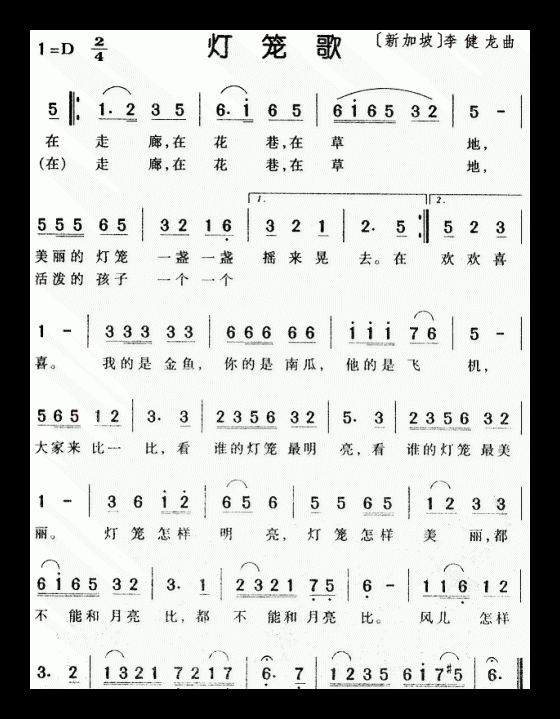 灯笼歌
1=D 2/4 〔新加坡〕李健龙曲
5 1. 2 3 5 6. i 6 5 6 i 6 5 3 2 5 -
在 走 廊,在 花 巷,在 草 地,
(在) 走 廊,在 花 巷,在 草 地,
1. 2.
5 5 5 6 5 3 2 1 6 3 2 1 2. 5 5 2 3
美丽的 灯笼 一盏 一盏 摇来晃 去。在 欢欢喜
活泼的 孩子 一个 一个
1 - 3 3 3 3 3 6 6 6 6 6 i i i 7 6 5 -
喜。 我的是 金鱼, 你的是 南瓜, 他的是 飞 机,
5 6 5 1 2 3. 3 2 3 5 6 3 2 5. 3 2 3 5 6 3 2
大家来 比一 比,看 谁的灯笼 最明 亮,看 谁的灯笼 最美
1 - 3 6 i 2 6 5 6 5 5 6 5 1 2 3 3
丽。 灯笼怎样 明 亮,灯笼怎样 美 丽,都
6 i 6 5 3 2 3. 1 2 3 2 1 7 5 6 - 1 1 6 1 2
不 能和 月亮 比,都 不 能和 月亮 比。 风儿 怎样
3. 2 1 3 2 1 7 2 1 7 6. 7 1 2 3 5 6 i 7 #5 6.